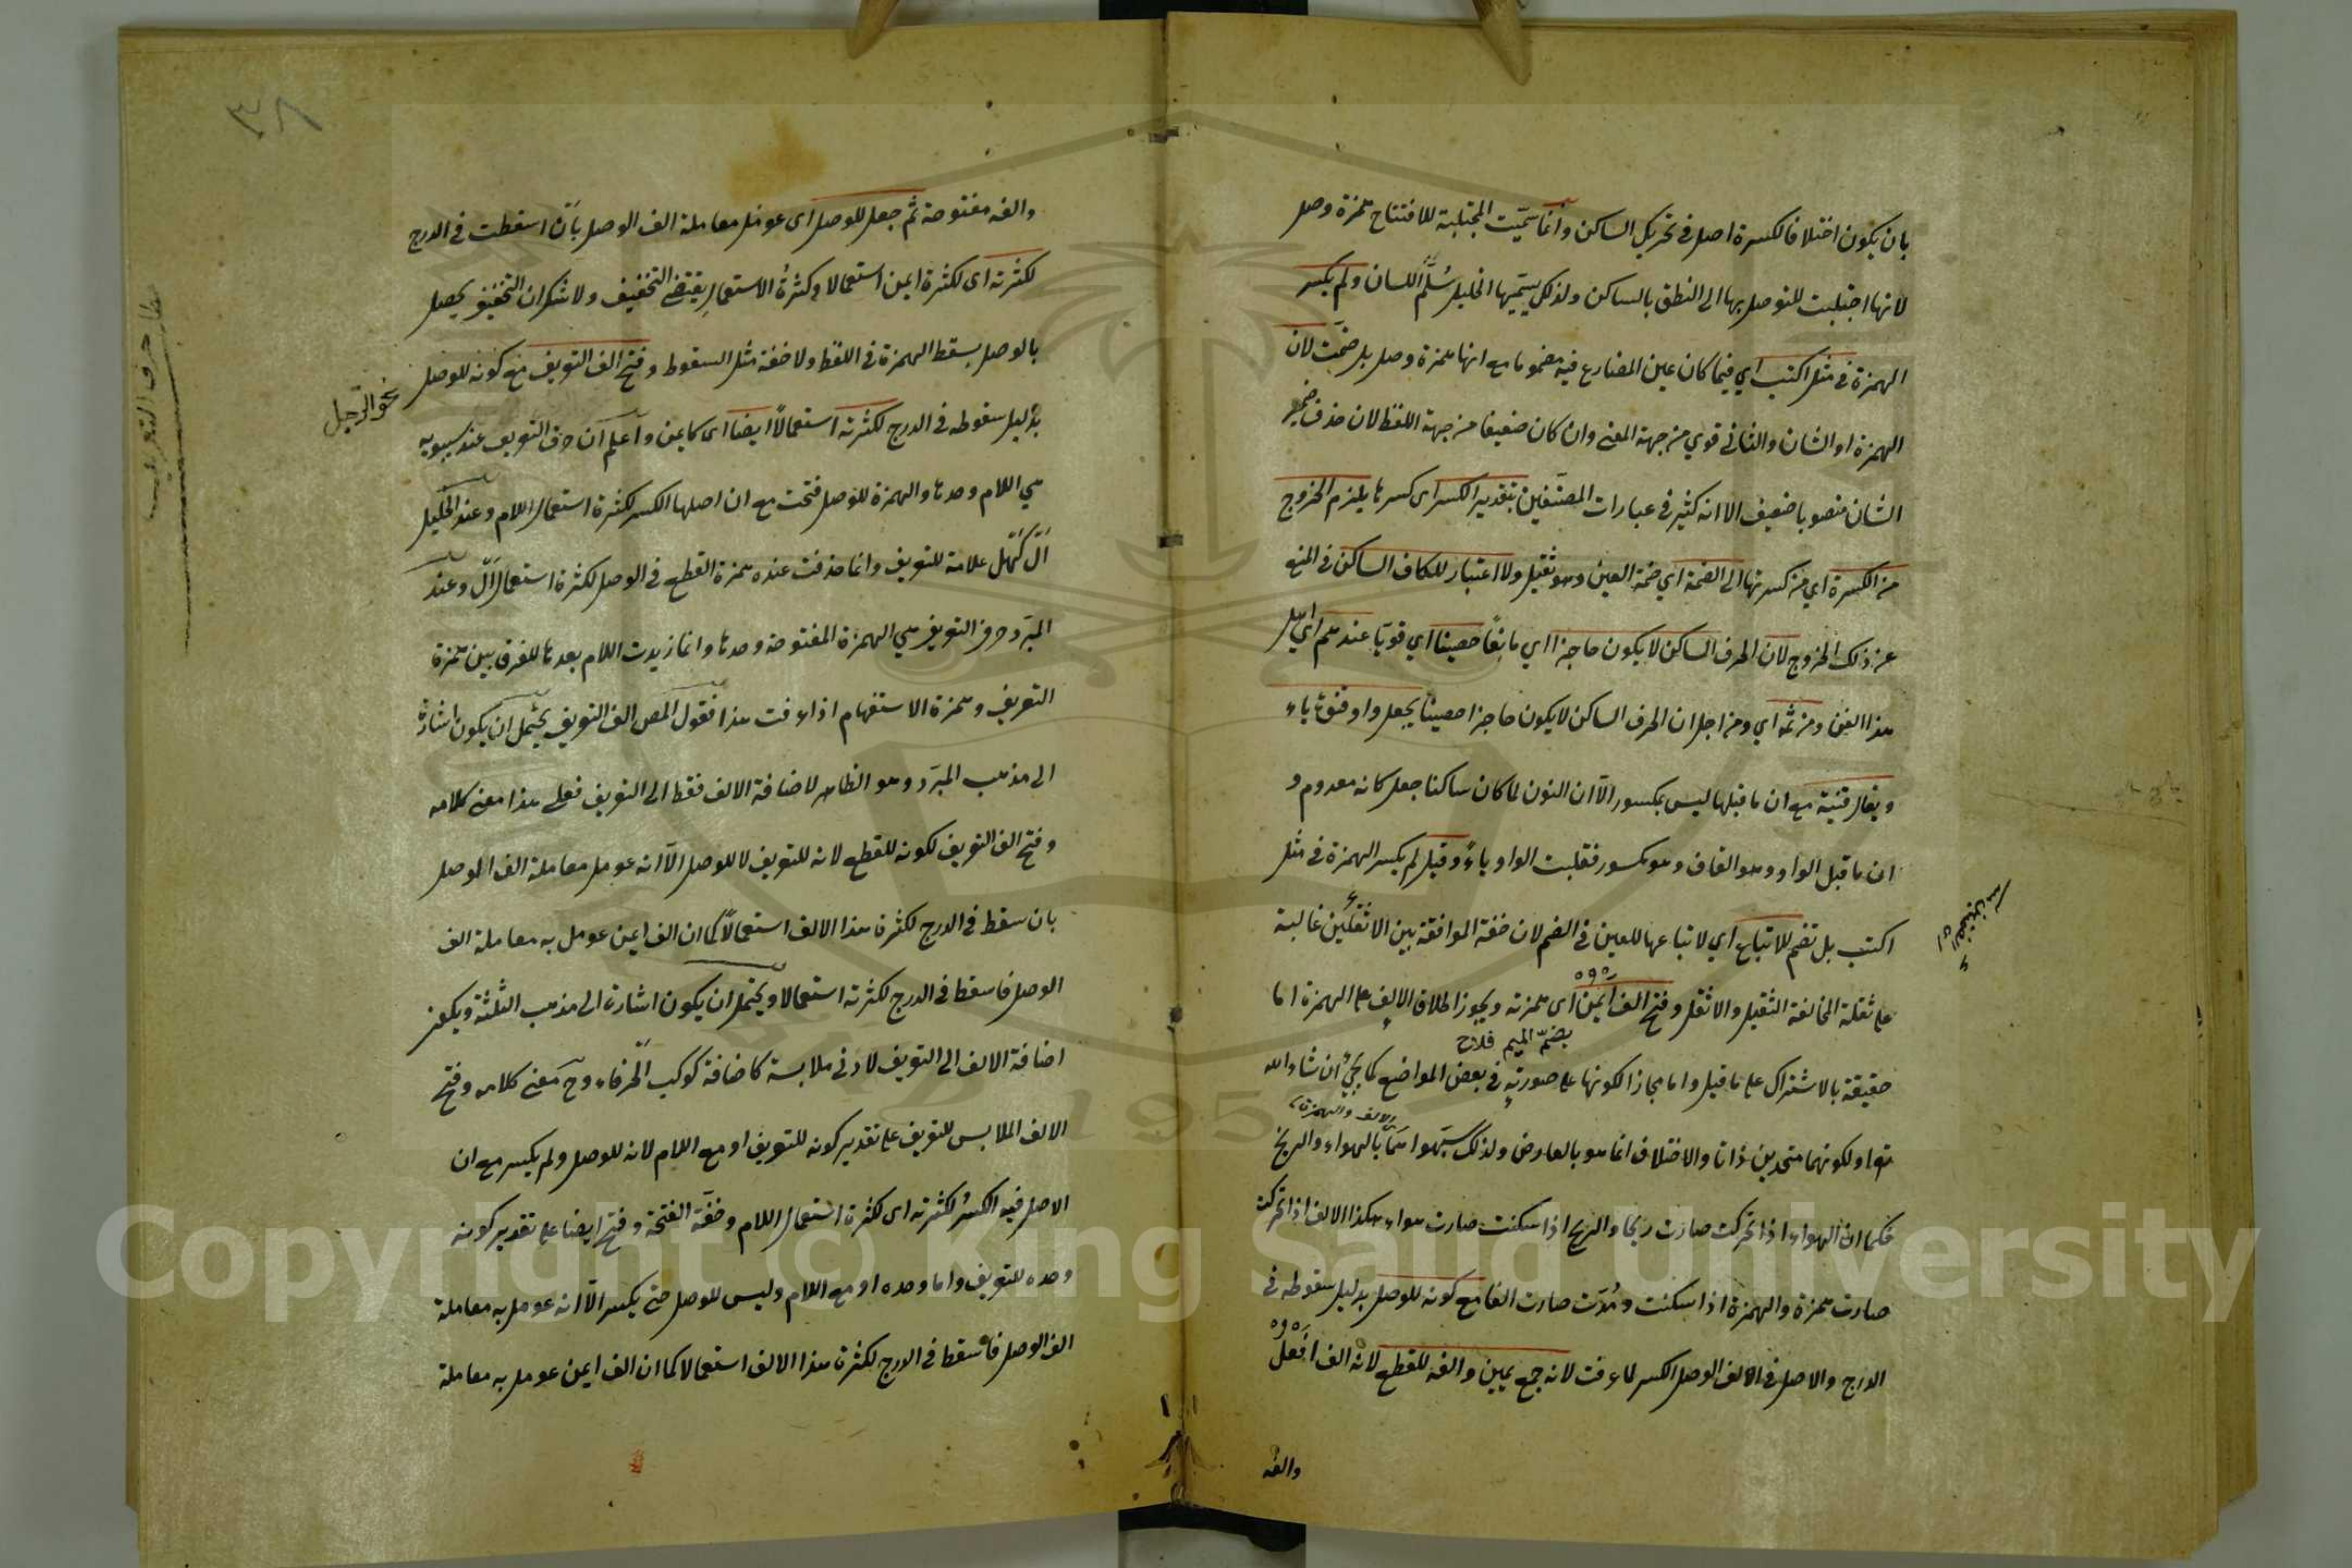 بان يكون اختلافا لكسرة اصل في تحريك الساكن وانما سمّيت المجتلبة للافتتاح همزة وصل
لانها اجتلبت للتوصل بها الى النطق بالساكن ولذلك يسمّيها الخليل سُلَّم اللسان ولم يكسر
الهمزة في مثل اكتب اي فيما كان عين المضارع فيه مضموما مع انها همزة وصل بل ضمّت لان
الهمزة او الشان والثاني قوي من جهة المعنى وان كان ضعيفا من جهة اللفظ لان حذف ضمير
الشان منصوبا ضعيف الا انه كثير في عبارات المصنّفين بتقدير الكسر اى كسرها يلزم الخروج
من الكسرة اي من كسرتها الى الضمة اي ضمة العين وهو ثقيل ولا اعتبار للكاف الساكن في المنع
عن ذلك الخروج لان الحرف الساكن لا يكون حاجزا اي مانعًا حصينا اي قويّا عندهم اي اهل
هذا الفن ومن ثمه اي ومن اجل ان الحرف الساكن لا يكون حاجزا حصينا يجعل واو قنوة ياء
ويقال قنية مع ان ما قبلها ليس بمكسور الّا ان النون لما كان ساكنا جعل كانه معدوم و
ان ما قبل الواو وهو القاف وهو مكسور فقلبت الواو ياءً وقيل لم يكسر الهمزة في مثل
اكتب بل تضم للاتباع اي لاتباعها للعين في الضم لان خفة الموافقة بين الاثقلين غالبة
على ثقلة المخالفة الثقيل والاثقل وفتح الف ايمن اى همزته ويجوز اطلاق الالف على الهمزة اما
بضمّ الميم فلاح
حقيقة بالاشتراك على ما قيل واما مجازا لكونها على صورته في بعض المواضع كما يجئ ان شاء الله
الالف والهمزة
تعا ولكونهما متحدين ذاتا والاختلاف انما هو بالعارض ولذلك شبّهوا بالهواء والريح
فكما ان الهواء اذا تحركت صارت ريحا والريح اذا سكنت صارت هواء هكذا الالف اذا تحركت
صارت همزة والهمزة اذا سكنت ومُدّت صارت الفا مع كونه للوصل بدليل سقوطه في
الدرج والاصل في الالف الوصل الكسر لما عرفت لانه جمع يمين والفه للقطع لانه الف افعل
والفه
٣٨
والفه مفتوحة ثم جعل للوصل اى عومل معاملة الف الوصل بأن اسقطت في الدرج
لكثرته اى لكثرة ايمن استعمالا وكثرةُ الاستعمالِ يقتضى التخفيف ولا شك ان التخفيف يحصل
بالوصل بسقط الهمزة في اللفظ ولا خفة مثل السقوط وفتح الف التعريف مع كونه للوصل
نحو الرجل
بدليل سقوطه في الدرج لكثرته استعمالًا ايضا اى كايمن واعلم ان حرف التعريف عند سيبويه
هي اللام وحدها والهمزة للوصل فتحت مع ان اصلها الكسر لكثرة استعمال اللام وعند الخليل
اَلْ كَهَلْ علامة للتعريف وانما حذفت عنده همزة القطع في الوصل لكثرة استعمال اَلْ وعند
المبرّد حرف التعريف هي الهمزة المفتوحة وحدها وانما زيدت اللام بعدها للفرق بين همزة
التعريف وهمزة الاستفهام اذا عرفت هذا فقول المص الف التعريف يحتمل ان يكون اشارة
الى مذهب المبرّد وهو الظاهر لاضافة الالف فقط الى التعريف فعلى هذا معنى كلامه
وفتح الف التعريف لكونه للقطع لانه للتعريف لا للوصل الّا انه عومل معاملة الف الوصل
بان سقط في الدرج لكثرة هذا الالف استعمالًا كما ان الف ايمن عومل به معاملة الف
الوصل فاسقط في الدرج لكثرته استعمالا ويحتمل ان يكون اشارة الى مذهب الثلثة ويكون
اضافة الالف الى التعريف لادنى ملابسة كاضافة كوكب الخرقاء وح معنى كلامه وفتح
الالف الملابس للتعريف على تقدير كونه للتعريف او مع اللام لانه للوصل ولم يكسر مع ان
الاصل فيه الكسرُ لكثرته اى كثرة استعمال اللام وخفّة الفتحة وفتح ايضا على تقدير كونه
وحده للتعريف واما وحده او مع اللام وليس للوصل حتى يكسر الّا انه عومل به معاملة
الف الوصل فاسقط في الدرج لكثرة هذا الالف استعمالا كما ان الف ايمن عومل به معاملة
Copyright © King Saud University